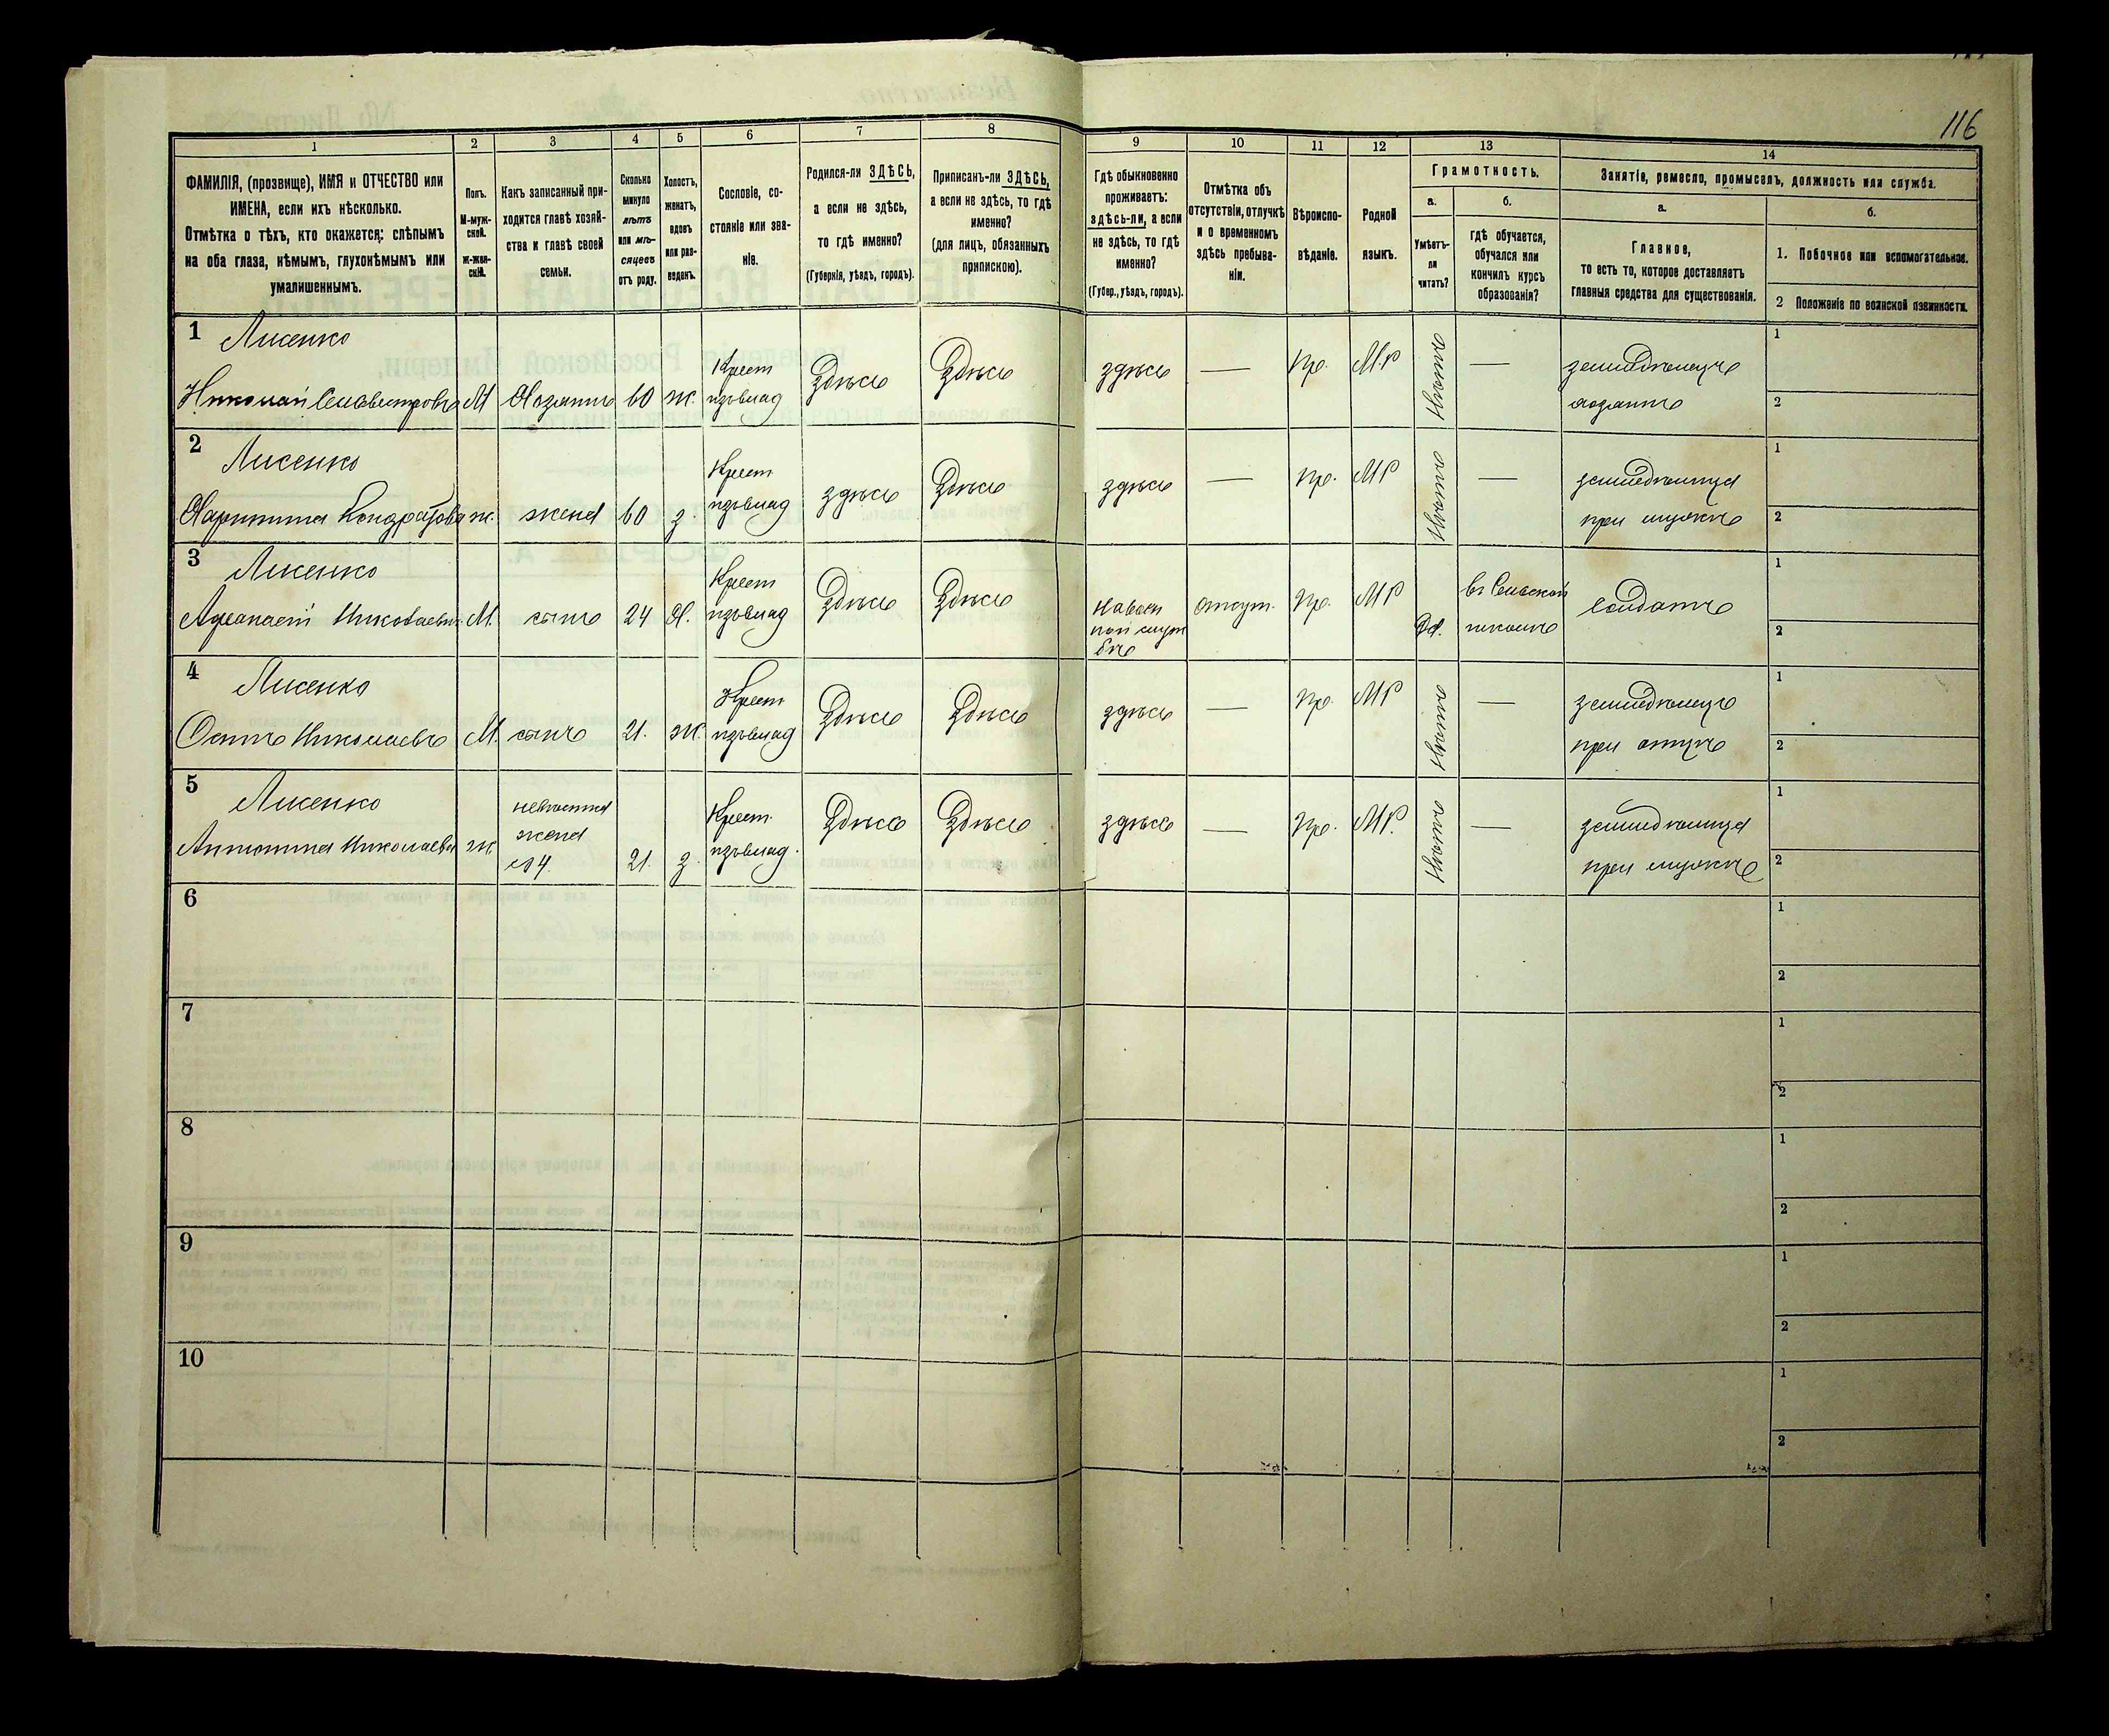 116
1 2 3 4 5 6 7 8 9 10 11 12 13 14
ФАМИЛІЯ, (прозвище), ИМЯ и ОТЧЕСТВО или
ИМЕНА, если ихъ нѣсколько.
Отмѣтка о тѣхъ, кто окажется: слѣпымъ
на оба глаза, нѣмымъ, глухонѣмымъ или
умалишеннымъ.
Полъ.
М-муж-
ской.
Ж-жен-
скій.
Какъ записанный при-
ходится главѣ хозяй-
ства и главѣ своей
семьи.
Сколько
минуло
лѣтъ
или мѣ-
сяцевъ
отъ роду.
Холостъ,
женатъ,
вдовъ
или раз-
веденъ.
Сословіе, со-
стояніе или зва-
ніе.
Родился-ли ЗДѢСЬ,
а если не здѣсь,
то гдѣ именно?
(Губернія, уѣздъ, городъ).
Приписанъ-ли ЗДѢСЬ,
а если не здѣсь, то гдѣ
именно?
(для лицъ, обязанныхъ
припискою).
Гдѣ обыкновенно
проживаетъ:
здѣсь-ли, а если
не здѣсь, то гдѣ
именно?
(Губер., уѣздъ, городъ).
Отмѣтка объ
отсутствіи, отлучкѣ
и о временномъ
здѣсь пребыва-
ніи.
Вѣроиспо-
вѣданіе.
Родной
языкъ.
Грамотность.
а.
Умѣетъ-
ли
читать?
б.
гдѣ обучается,
обучался или
кончилъ курсъ
образованія?
Занятіе, ремесло, промыселъ, должность или служба.
а.
Главное,
то есть то, которое доставляетъ
главныя средства для существованія.
б.
1. Побочное или вспомогательное.
2 Положеніе по воинской повинности.
1 Лисенко
Николай Сильвестровъ М Хозяинъ 60 ж. Крест
изъ влад Здѣсь Здѣсь здѣсь — Пр. МР Нѣтъ — земледѣлецъ
хозяинъ
1
2
2 Лисенко
Кондратова ж. жена 60 з. Крест
изъ влад здѣсь Здѣсь здѣсь — Пр. МР Нѣтъ — земледѣлица
при мужѣ
1
2
3 Лисенко
Афанасій М. сынъ 24 Х. Крест
изъ влад Здѣсь Здѣсь На воен
ной служ
бѣ отсут. Пр. МР Да. въ Сельской
школѣ Солдатъ
1
2
4 Лисенко
Осипъ Николаевъ М. сынъ 21. ж. Крест
изъ влад Здѣсь Здѣсь здѣсь — Пр. МР Нѣтъ — земледѣлецъ
при отцѣ
1
2
5 Лисенко
Николаева ж. невѣстка
жена
21. з. Крест.
изъ влад. Здѣсь Здѣсь здѣсь — Пр. МР. Нѣтъ — земледѣлица
при мужѣ
1
2
6
1
2
7
1
2
8
1
2
9
1
2
10
1
2